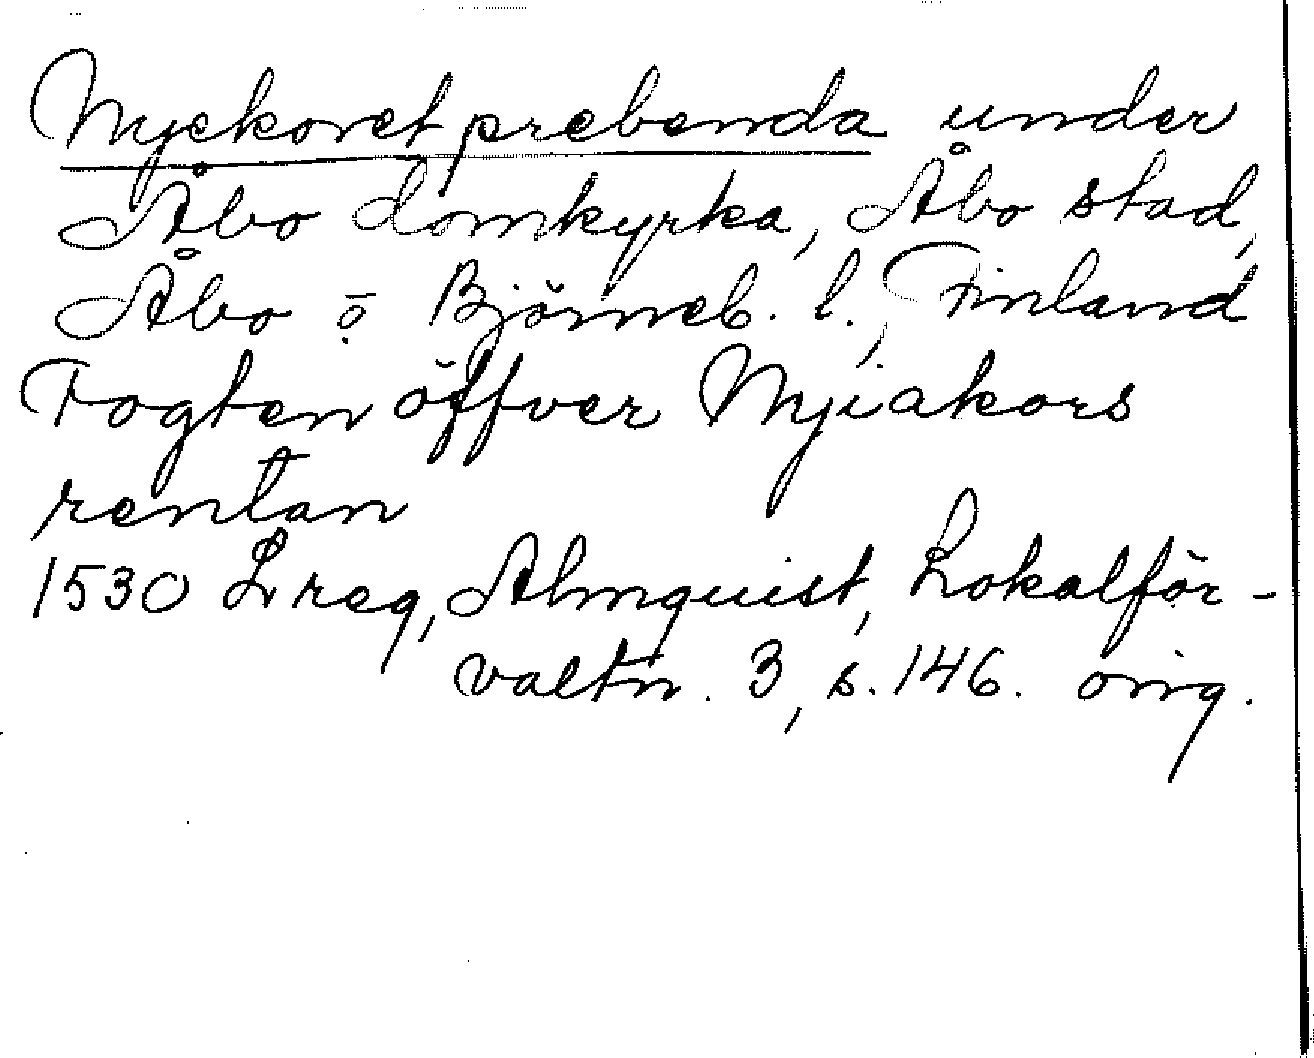 Nyekoret prebenda under
Åbo domkyrka, Åbo stad,
Åbo o. Björneb. l., Finland
Fogten öffver Nyiakors
rentan
1530 Lreg, Almquist, Lokalför-
valtn. 3, s. 146. orig.